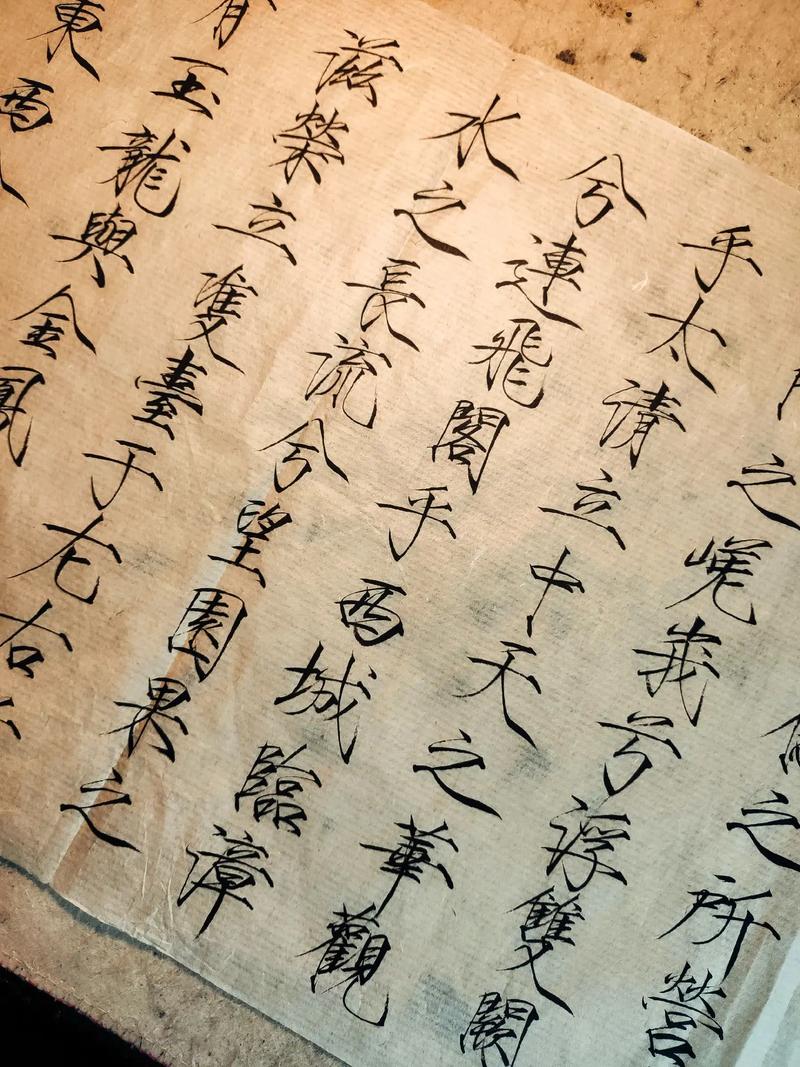 之所營
之嵯峩兮浮雙闕
乎太請立中天之華觀
兮連飛閣乎西城臨漳
水之長流兮望園果之
滋榮立雙臺于左右
有玉龍與金鳳
東西